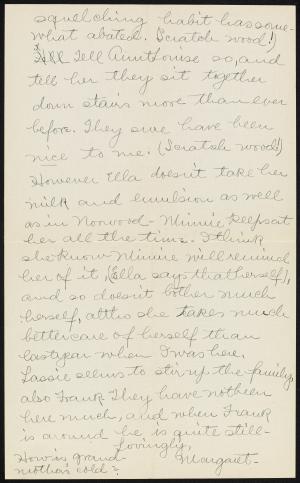 squelching habit has some-
what abated. (Scratch wood!)
Tell Aunt Louise so, and
tell her they sit together
down stairs more than ever
before. They sure have been
nice to me. (Scratch wood!)
However Ella doesn't take her
milk and emulsion as well
as in Norwood - Minnie keeps at
her all the time. I think
she know Minnie will remind
her of it, (Ella says that herself),
and so doesn't bother much
herself, altho she takes much
better care of herself than
last year when I was here.
Lassie seems to stir up the family,
also Frank. They have not been
here much, and when Frank
is around he is quite still -
Lovingly,
Margaret -
How is grand-
mother's cold?